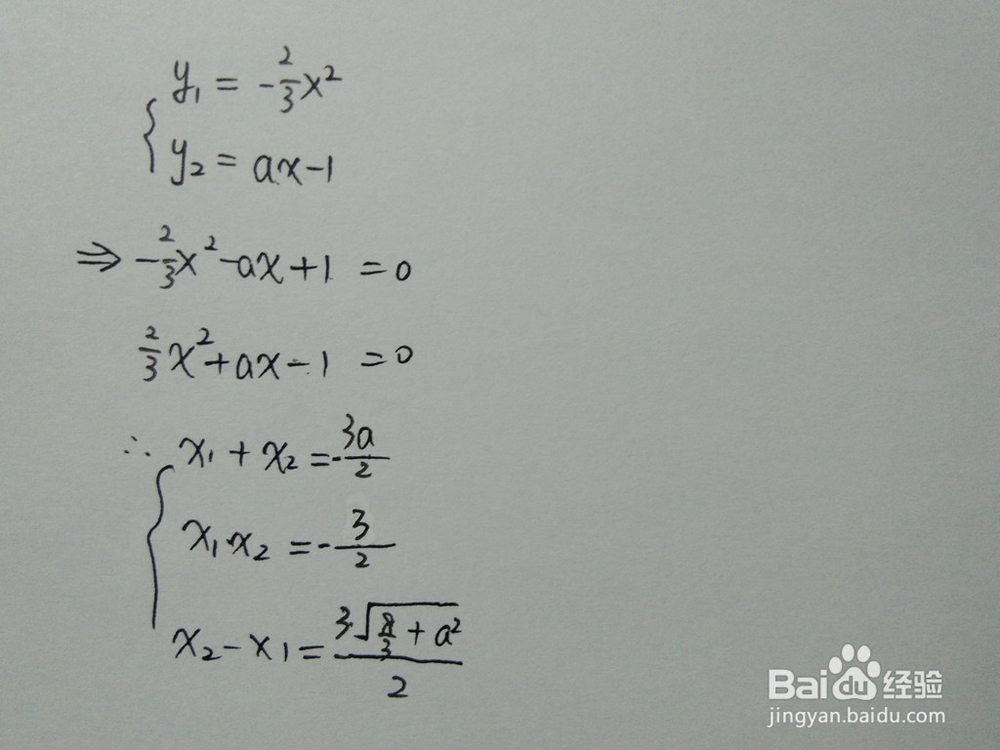 y₁ = -2/3 x²
y₂ = ax-1
⇒ -2/3 x² -ax+1 = 0
2/3 x² +ax-1 = 0
∴ x₁ + x₂ = -3a/2
x₁·x₂ = -3/2
x₂-x₁ = 3√(8/3 + a²)/2
Baidu经验
jingyan.baidu.com